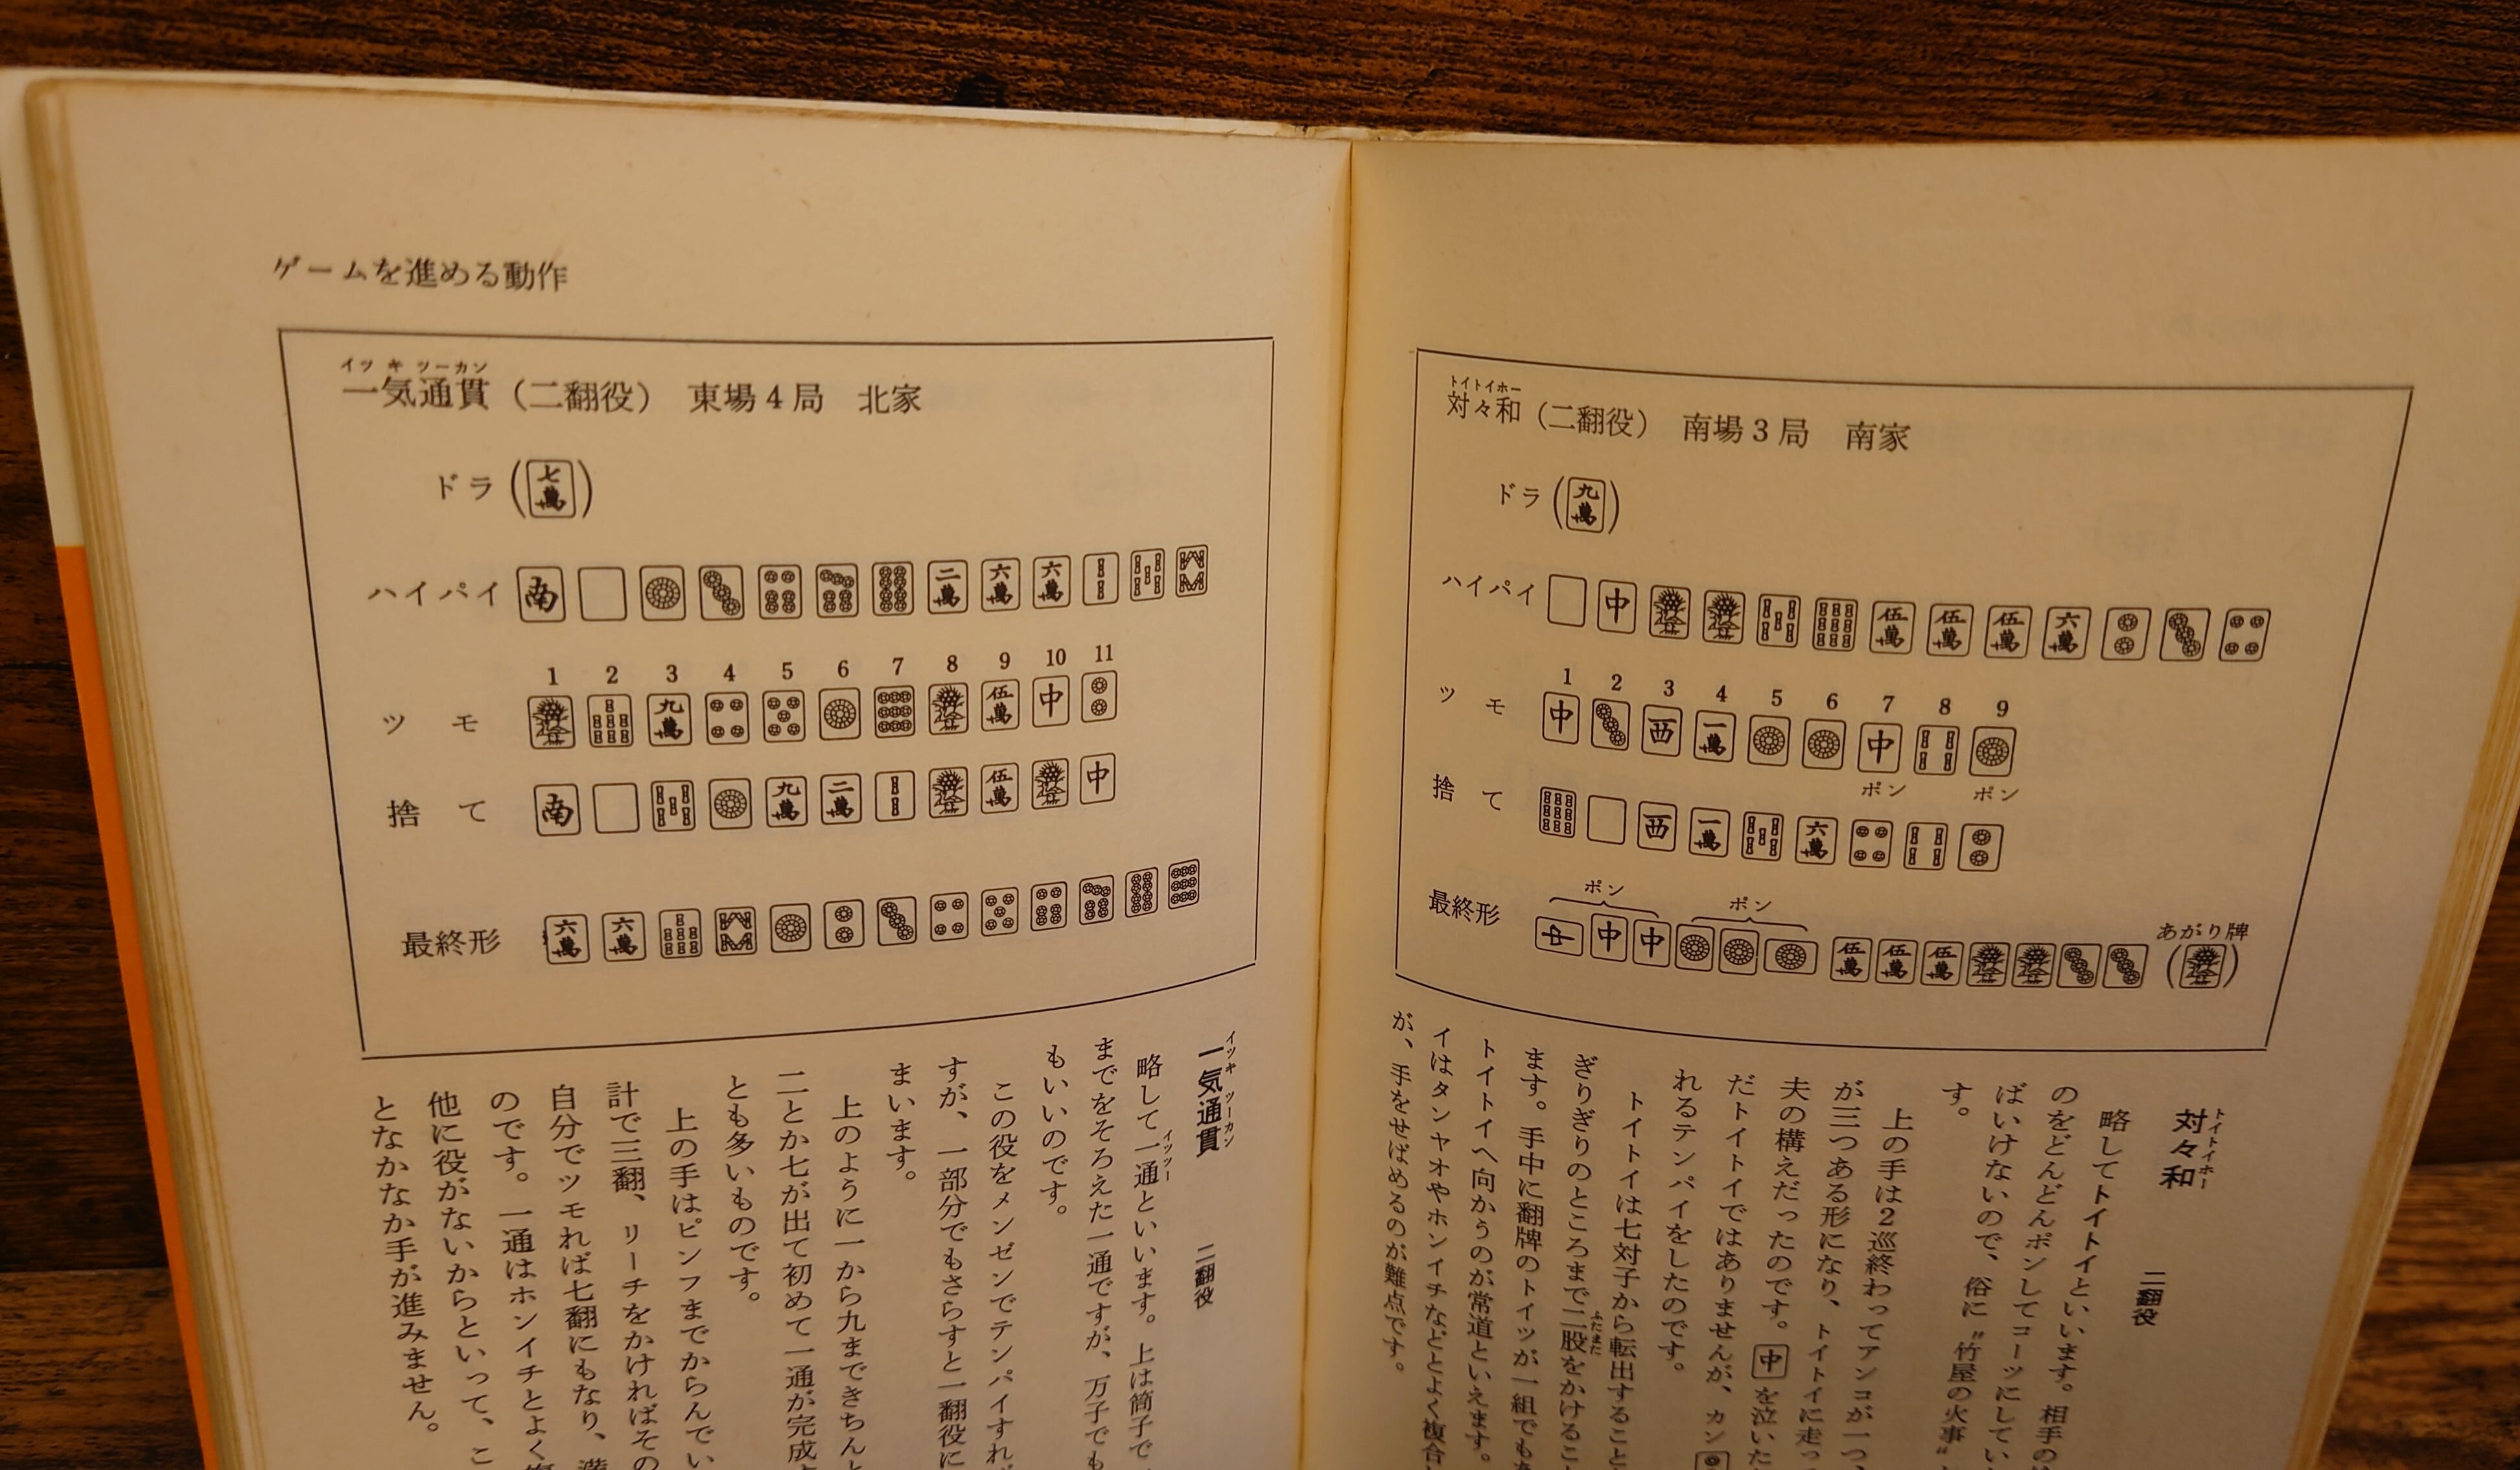 ゲームを進める動作
イッキツーカン
一気通貫（二翻役） 東場4局 北家
ドラ（七萬）
ハイパイ 南 二萬 六萬 六萬
1 2 3 4 5 6 7 8 9 10 11
ツモ 九萬 伍萬 中
捨て 南 九萬 二萬 伍萬 中
最終形 六萬 六萬
イッキツーカン
一気通貫 二翻役
略して一通といいます。上は筒子で
イッツー
までをそろえた一通ですが、万子でも
もいいのです。
この役をメンゼンでテンパイすれ
すが、一部分でもさらすと一翻役に
まいます。
上のように一から九まできちんと
二とか七が出て初めて一通が完成
とも多いものです。
上の手はピンフまでからんでい
計で三翻、リーチをかければその
自分でツモれば七翻にもなり、満
のです。一通はホンイチとよく
他に役がないからといって、こ
となかなか手が進みません。
トイトイホー
対々和（二翻役） 南場3局 南家
ドラ（九萬）
ハイパイ 中 伍萬 伍萬 伍萬 六萬
1 2 3 4 5 6 7 8 9
ツモ 中 西 一萬 中
ポン ポン
捨て 西 一萬 六萬
ポン ポン
あがり牌
最終形 中 中 中 伍萬 伍萬 伍萬
トイトイホー
対々和 二翻役
略してトイトイといいます。相手の
のをどんどんポンしてコーツにしてい
ばいけないので、俗に〝竹屋の火事〟
す。
上の手は2巡終わってアンコが一つ、
が三つある形になり、トイトイに走っ
夫の構えだったのです。中を泣いた
だトイトイではありませんが、カン
れるテンパイをしたのです。
トイトイは七対子から転出すること
ぎりぎりのところまで二股をかけるこ
ふたまた
ます。手中に翻牌のトイツが一組でも
トイトイへ向かうのが常道といえます。
イはタンヤオやホンイチなどとよく複合
が、手をせばめるのが難点です。